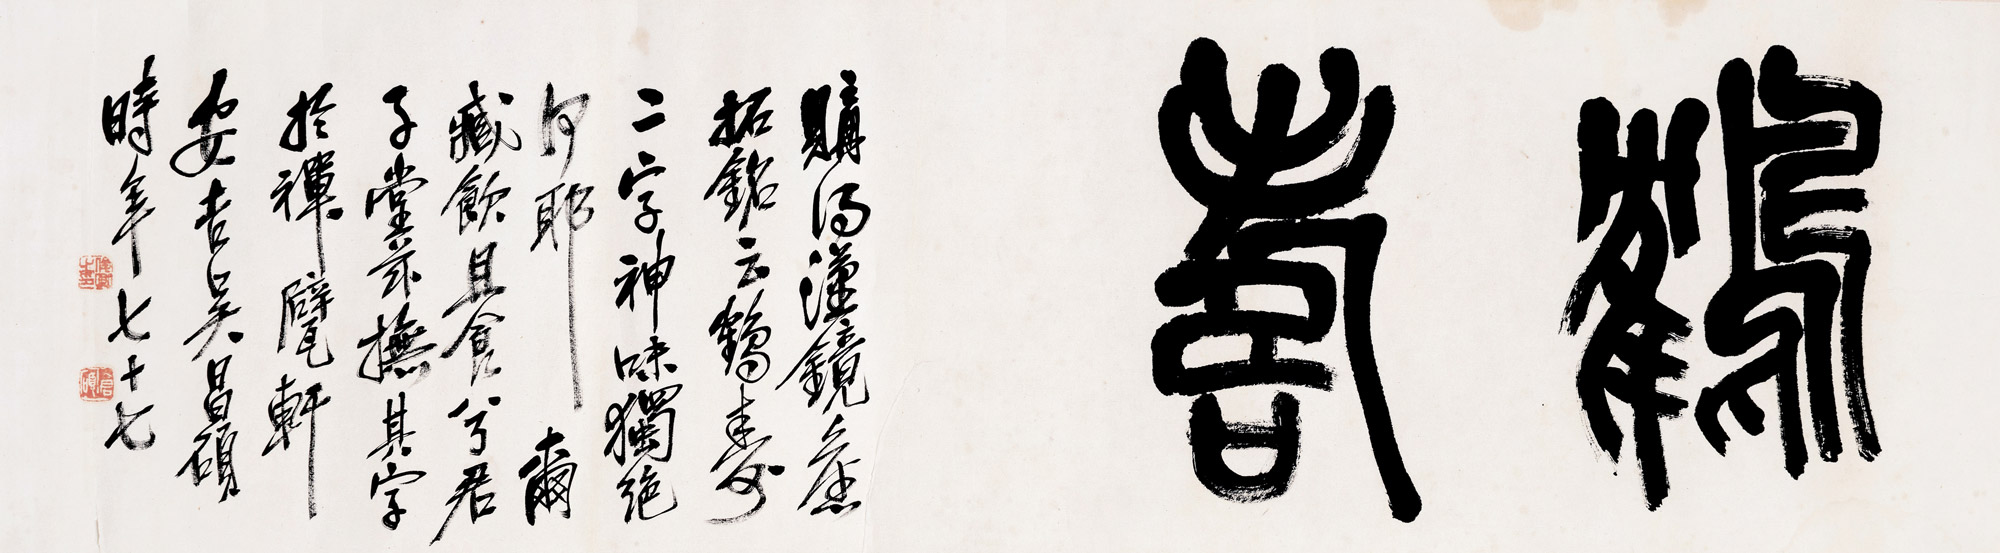 鶴壽
購得漢鏡𠫓
拓銘云鶴壽
二字神味獨絕
何耶 爾
臧飲且食兮君
子堂茲撫其字
於禪甓軒
安吉吳昌碩
時年七十七